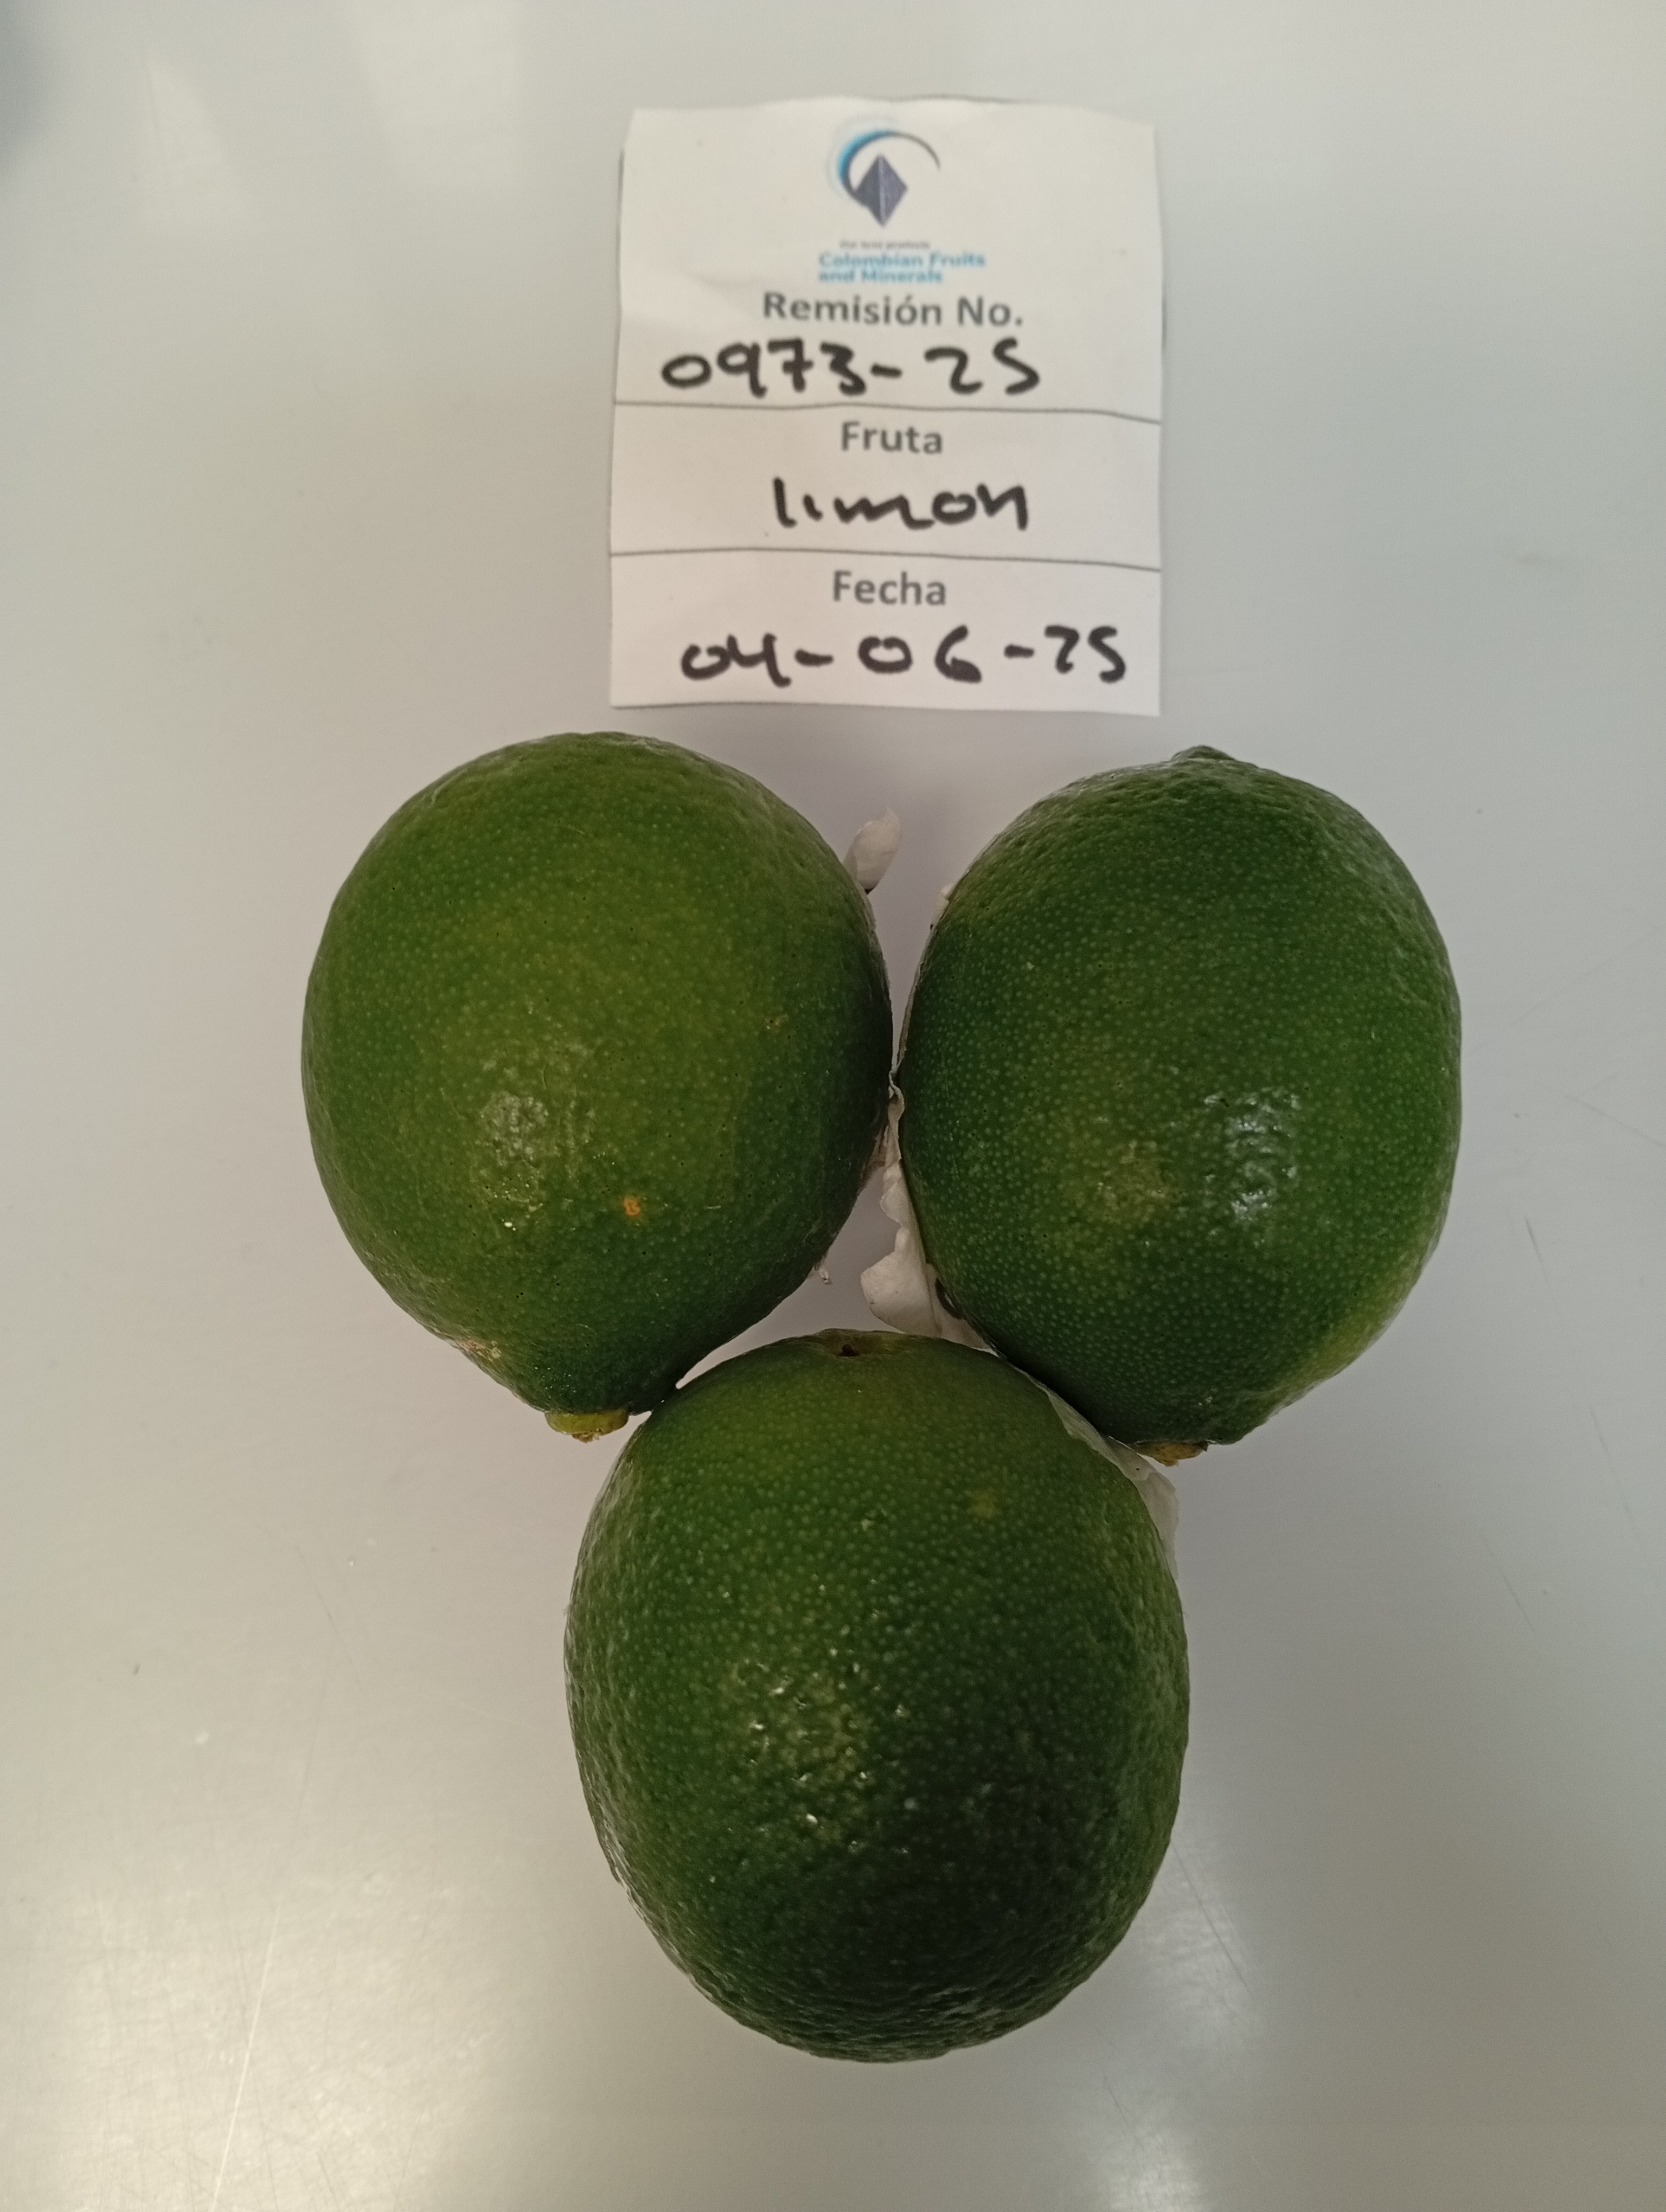 Our best products
Colombian Fruits
and Minerals
Remisión No.
0973-25
Fruta
limon
Fecha
04-06-25